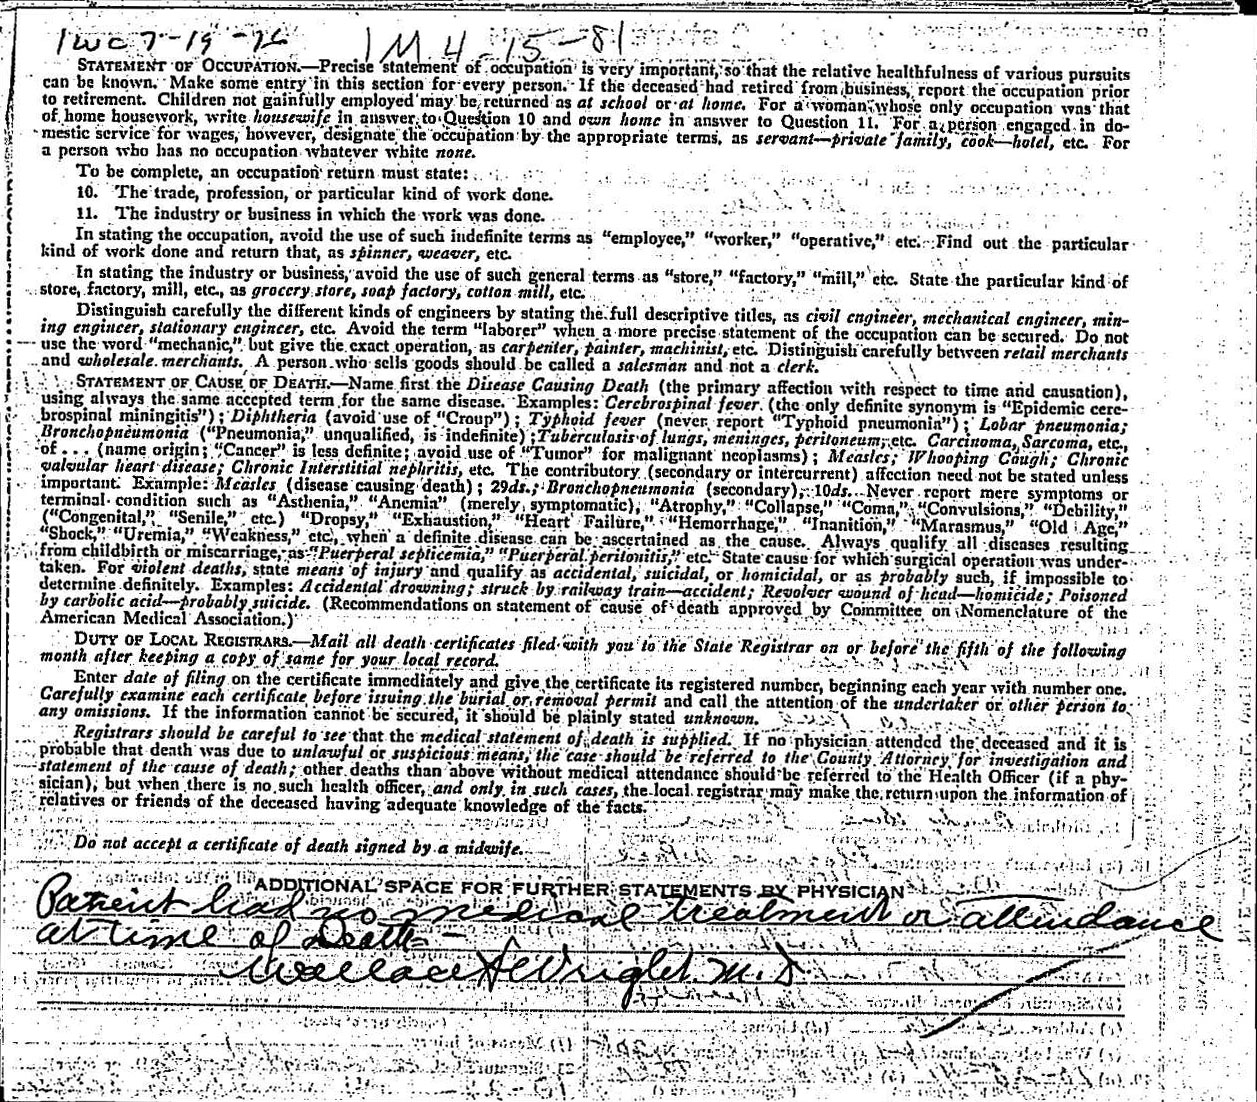 1wc 7-19-76 1M 4-15-81
STATEMENT OF OCCUPATION.—Precise statement of occupation is very important, so that the relative healthfulness of various pursuits
can be known. Make some entry in this section for every person. If the deceased had retired from business, report the occupation prior
to retirement. Children not gainfully employed may be returned as at school or at home. For a woman whose only occupation was that
of home housework, write housewife in answer to Question 10 and own home in answer to Question 11. For a person engaged in do-
mestic service for wages, however, designate the occupation by the appropriate terms, as servant—private family, cook—hotel, etc. For
a person who has no occupation whatever white none.
To be complete, an occupation return must state:
10. The trade, profession, or particular kind of work done.
11. The industry or business in which the work was done.
In stating the occupation, avoid the use of such indefinite terms as “employee,” “worker,” “operative,” etc. Find out the particular
kind of work done and return that, as spinner, weaver, etc.
In stating the industry or business, avoid the use of such general terms as “store,” “factory,” “mill,” etc. State the particular kind of
store, factory, mill, etc., as grocery store, soap factory, cotton mill, etc.
Distinguish carefully the different kinds of engineers by stating the full descriptive titles, as civil engineer, mechanical engineer, min-
ing engineer, stationary engineer, etc. Avoid the term “laborer” when a more precise statement of the occupation can be secured. Do not
use the word “mechanic,” but give the exact operation, as carpenter, painter, machinist, etc. Distinguish carefully between retail merchants
and wholesale merchants. A person who sells goods should be called a salesman and not a clerk.
STATEMENT OF CAUSE OF DEATH.—Name first the Disease Causing Death (the primary affection with respect to time and causation),
using always the same accepted term for the same disease. Examples: Cerebrospinal fever (the only definite synonym is “Epidemic cere-
brospinal miningitis”); Diphtheria (avoid use of “Croup”); Typhoid fever (never report “Typhoid pneumonia”); Lobar pneumonia;
Bronchopneumonia (“Pneumonia,” unqualified, is indefinite); Tuberculosis of lungs, meninges, peritoneum, etc. Carcinoma, Sarcoma, etc.,
of . . . (name origin; “Cancer” is less definite; avoid use of “Tumor” for malignant neoplasms); Measles; Whooping Cough; Chronic
valvular heart disease; Chronic Interstitial nephritis, etc. The contributory (secondary or intercurrent) affection need not be stated unless
important. Example: Measles (disease causing death); 29ds.; Bronchopneumonia (secondary), 10ds. Never report mere symptoms or
terminal condition such as “Asthenia,” “Anemia” (merely symptomatic), “Atrophy,” “Collapse,” “Coma,” “Convulsions,” “Debility,”
(“Congenital,” “Senile,” etc.) “Dropsy,” “Exhaustion,” “Heart Failure,” “Hemorrhage,” “Inanition,” “Marasmus,” “Old Age,”
“Shock,” “Uremia,” “Weakness,” etc., when a definite disease can be ascertained as the cause. Always qualify all diseases resulting
from childbirth or miscarriage, as “Puerperal septicemia,” “Puerperal peritonitis,” etc. State cause for which surgical operation was under-
taken. For violent deaths, state means of injury and qualify as accidental, suicidal, or homicidal, or as probably such, if impossible to
determine definitely. Examples: Accidental drowning; struck by railway train—accident; Revolver wound of head—homicide; Poisoned
by carbolic acid—probably suicide. (Recommendations on statement of cause of death approved by Committee on Nomenclature of the
American Medical Association.)
DUTY OF LOCAL REGISTRARS.—Mail all death certificates filed with you to the State Registrar on or before the fifth of the following
month after keeping a copy of same for your local record.
Enter date of filing on the certificate immediately and give the certificate its registered number, beginning each year with number one.
Carefully examine each certificate before issuing the burial or removal permit and call the attention of the undertaker or other person to
any omissions. If the information cannot be secured, it should be plainly stated unknown.
Registrars should be careful to see that the medical statement of death is supplied. If no physician attended the deceased and it is
probable that death was due to unlawful or suspicious means, the case should be referred to the County Attorney for investigation and
statement of the cause of death; other deaths than above without medical attendance should be referred to the Health Officer (if a phy-
sician), but when there is no such health officer, and only in such cases, the local registrar may make the return upon the information of
relatives or friends of the deceased having adequate knowledge of the facts.
Do not accept a certificate of death signed by a midwife.
ADDITIONAL SPACE FOR FURTHER STATEMENTS BY PHYSICIAN
Patient had no medical treatment or attendance
at time of Death—
Wallace H Wright. M.D